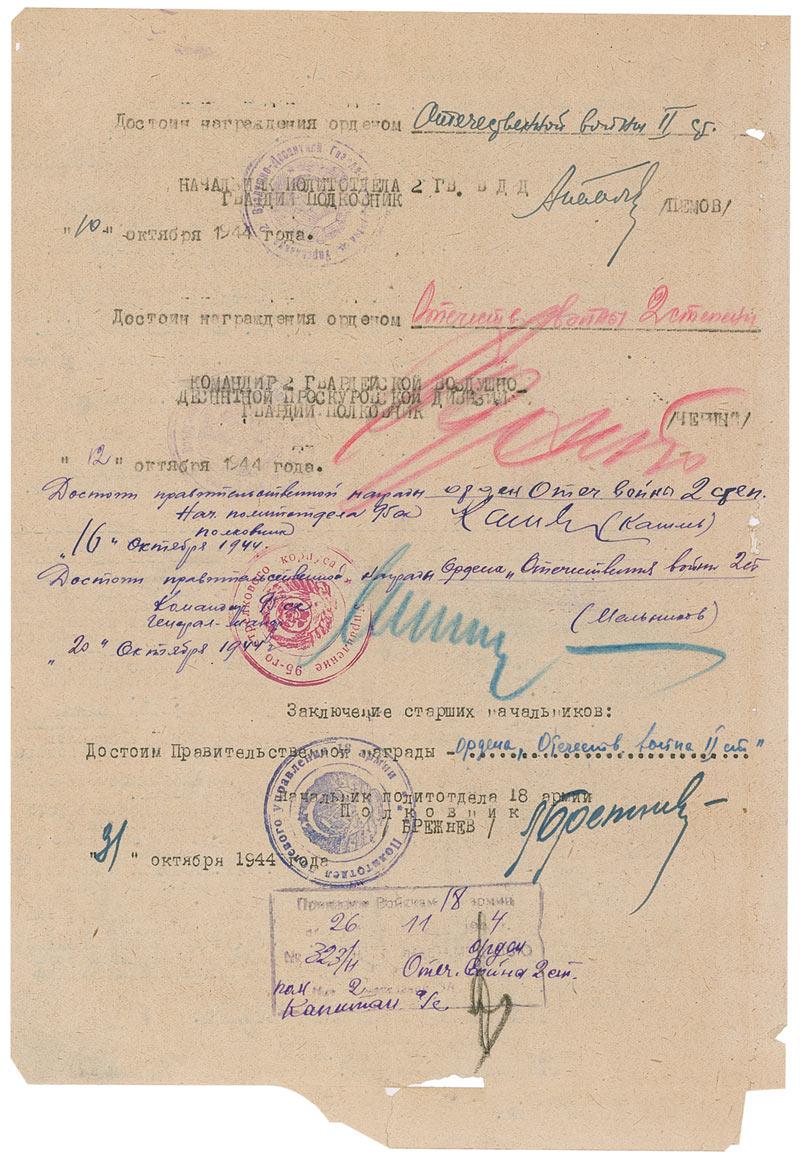 Достоин награждения орденом Отечественной войны II ст.
НАЧАЛЬНИК ПОЛИТОТДЕЛА 2 ГВ. В Д Д
ГВАРДИИ ПОЛКОВНИК
"10" октября 1944 года.
Достоин награждения орденом Отечеств. войны 2 степени
КОМАНДИР 2 ГВАРДЕЙСКОЙ ВОЗДУШНО_
ДЕСАНТНОЙ ПРОСКУРОВСКОЙ ДИВИЗИИ
ГВАРДИИ ПОЛКОВНИК /ЧЕРНЫЙ/
"12" октября 1944 года.
Достоин правительственной награды орден Отеч войны 2 степ.
Нач. политотдела 95 ск
полковник
"16" Октября 1944.
Достоин правительственной награды Ордена „Отечественная война 2 ст
Командир 95 ск
Генерал-майор (Мельников)
"20" Октября 1944 г
управление 95-го стрелкового корпуса
Заключение старших начальников:
Достоин Правительственной награды - ордена „Отечеств. война II ст"
Начальник политотдела 18 армии
Полковник
/ БРЕЖНЕВ /
"31" октября 1944 года
Политотдел Полевого управления 18 армии
Приказом Войскам 18 армии
26 11 1944 г.
№ 323/н орден
Отеч. Война 2 ст.
Капитан а/с